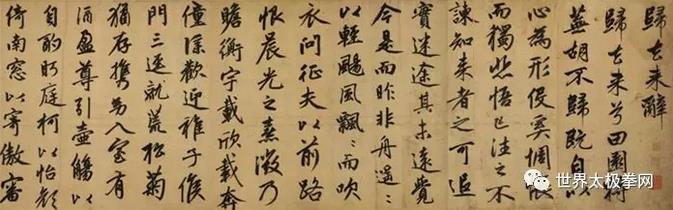 歸去来辭
歸去来兮田園將
蕪胡不歸既自以
心為形役奚惆悵
而獨悲悟已往之不
諫知来者之可追
實迷途其未遠覺
今是而昨非舟遥〻
以輕颺風飄〻而吹
衣問征夫以前路
恨晨光之熹微乃
瞻衡宇載欣載奔
僮僕歡迎稚子候
門三逕就荒松菊
猶存携幼入室有
酒盈尊引壺觴以
自酌眄庭柯以怡顔
倚南窓以寄傲審
世界太极拳网